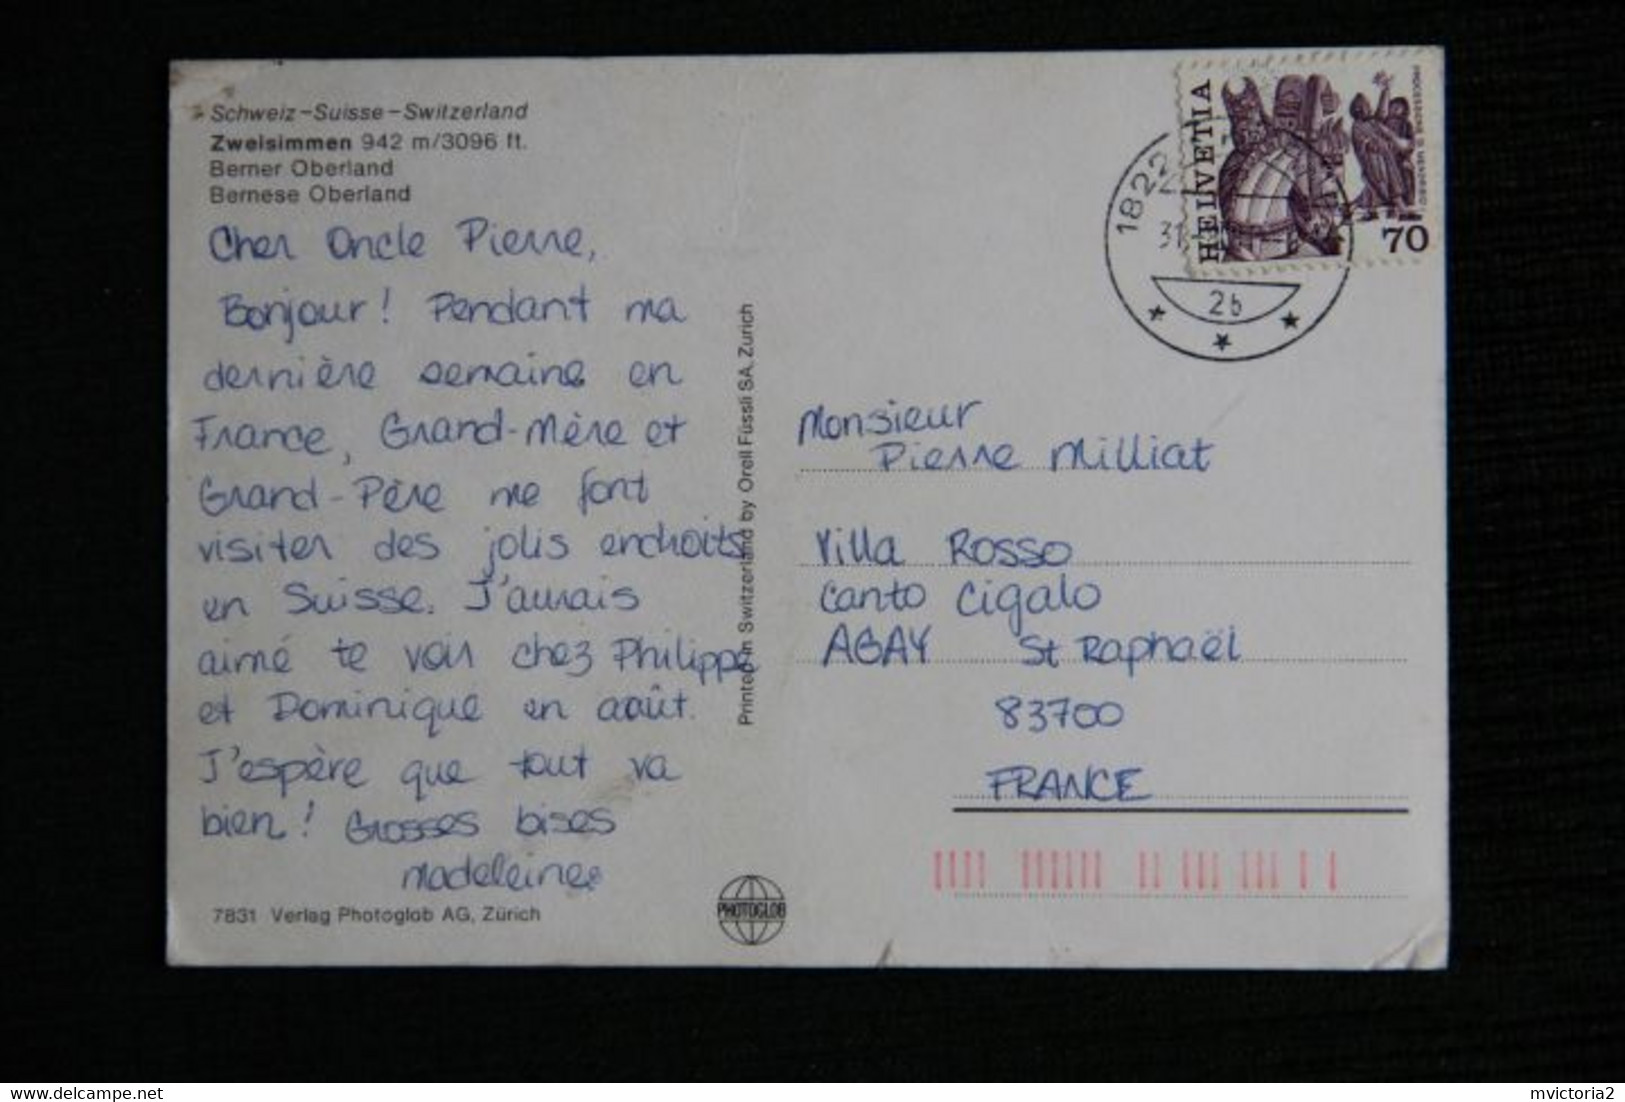 Schweiz–Suisse–Switzerland
Zweisimmen 942 m/3096 ft.
Berner Oberland
Bernese Oberland
Cher Oncle Pierre,
Bonjour! Pendant ma
dernière semaine en
France, Grand-Mère et
Grand-Père me font
visiter des jolis endroits
en Suisse. J'aurais
aimé te voir chez Philippe
et Dominique en août.
J'espère que tout va
bien! Grosses bises
Madeleine.
7831 Verlag Photoglob AG, Zürich
Printed in Switzerland by Orell Füssli SA, Zürich
PHOTOGLOB
HELVETIA
70
1822
31
2b
Monsieur
Pierre Milliat
Villa Rosso
Canto Cigalo
AGAY St Raphaël
83700
FRANCE
mvictoria2